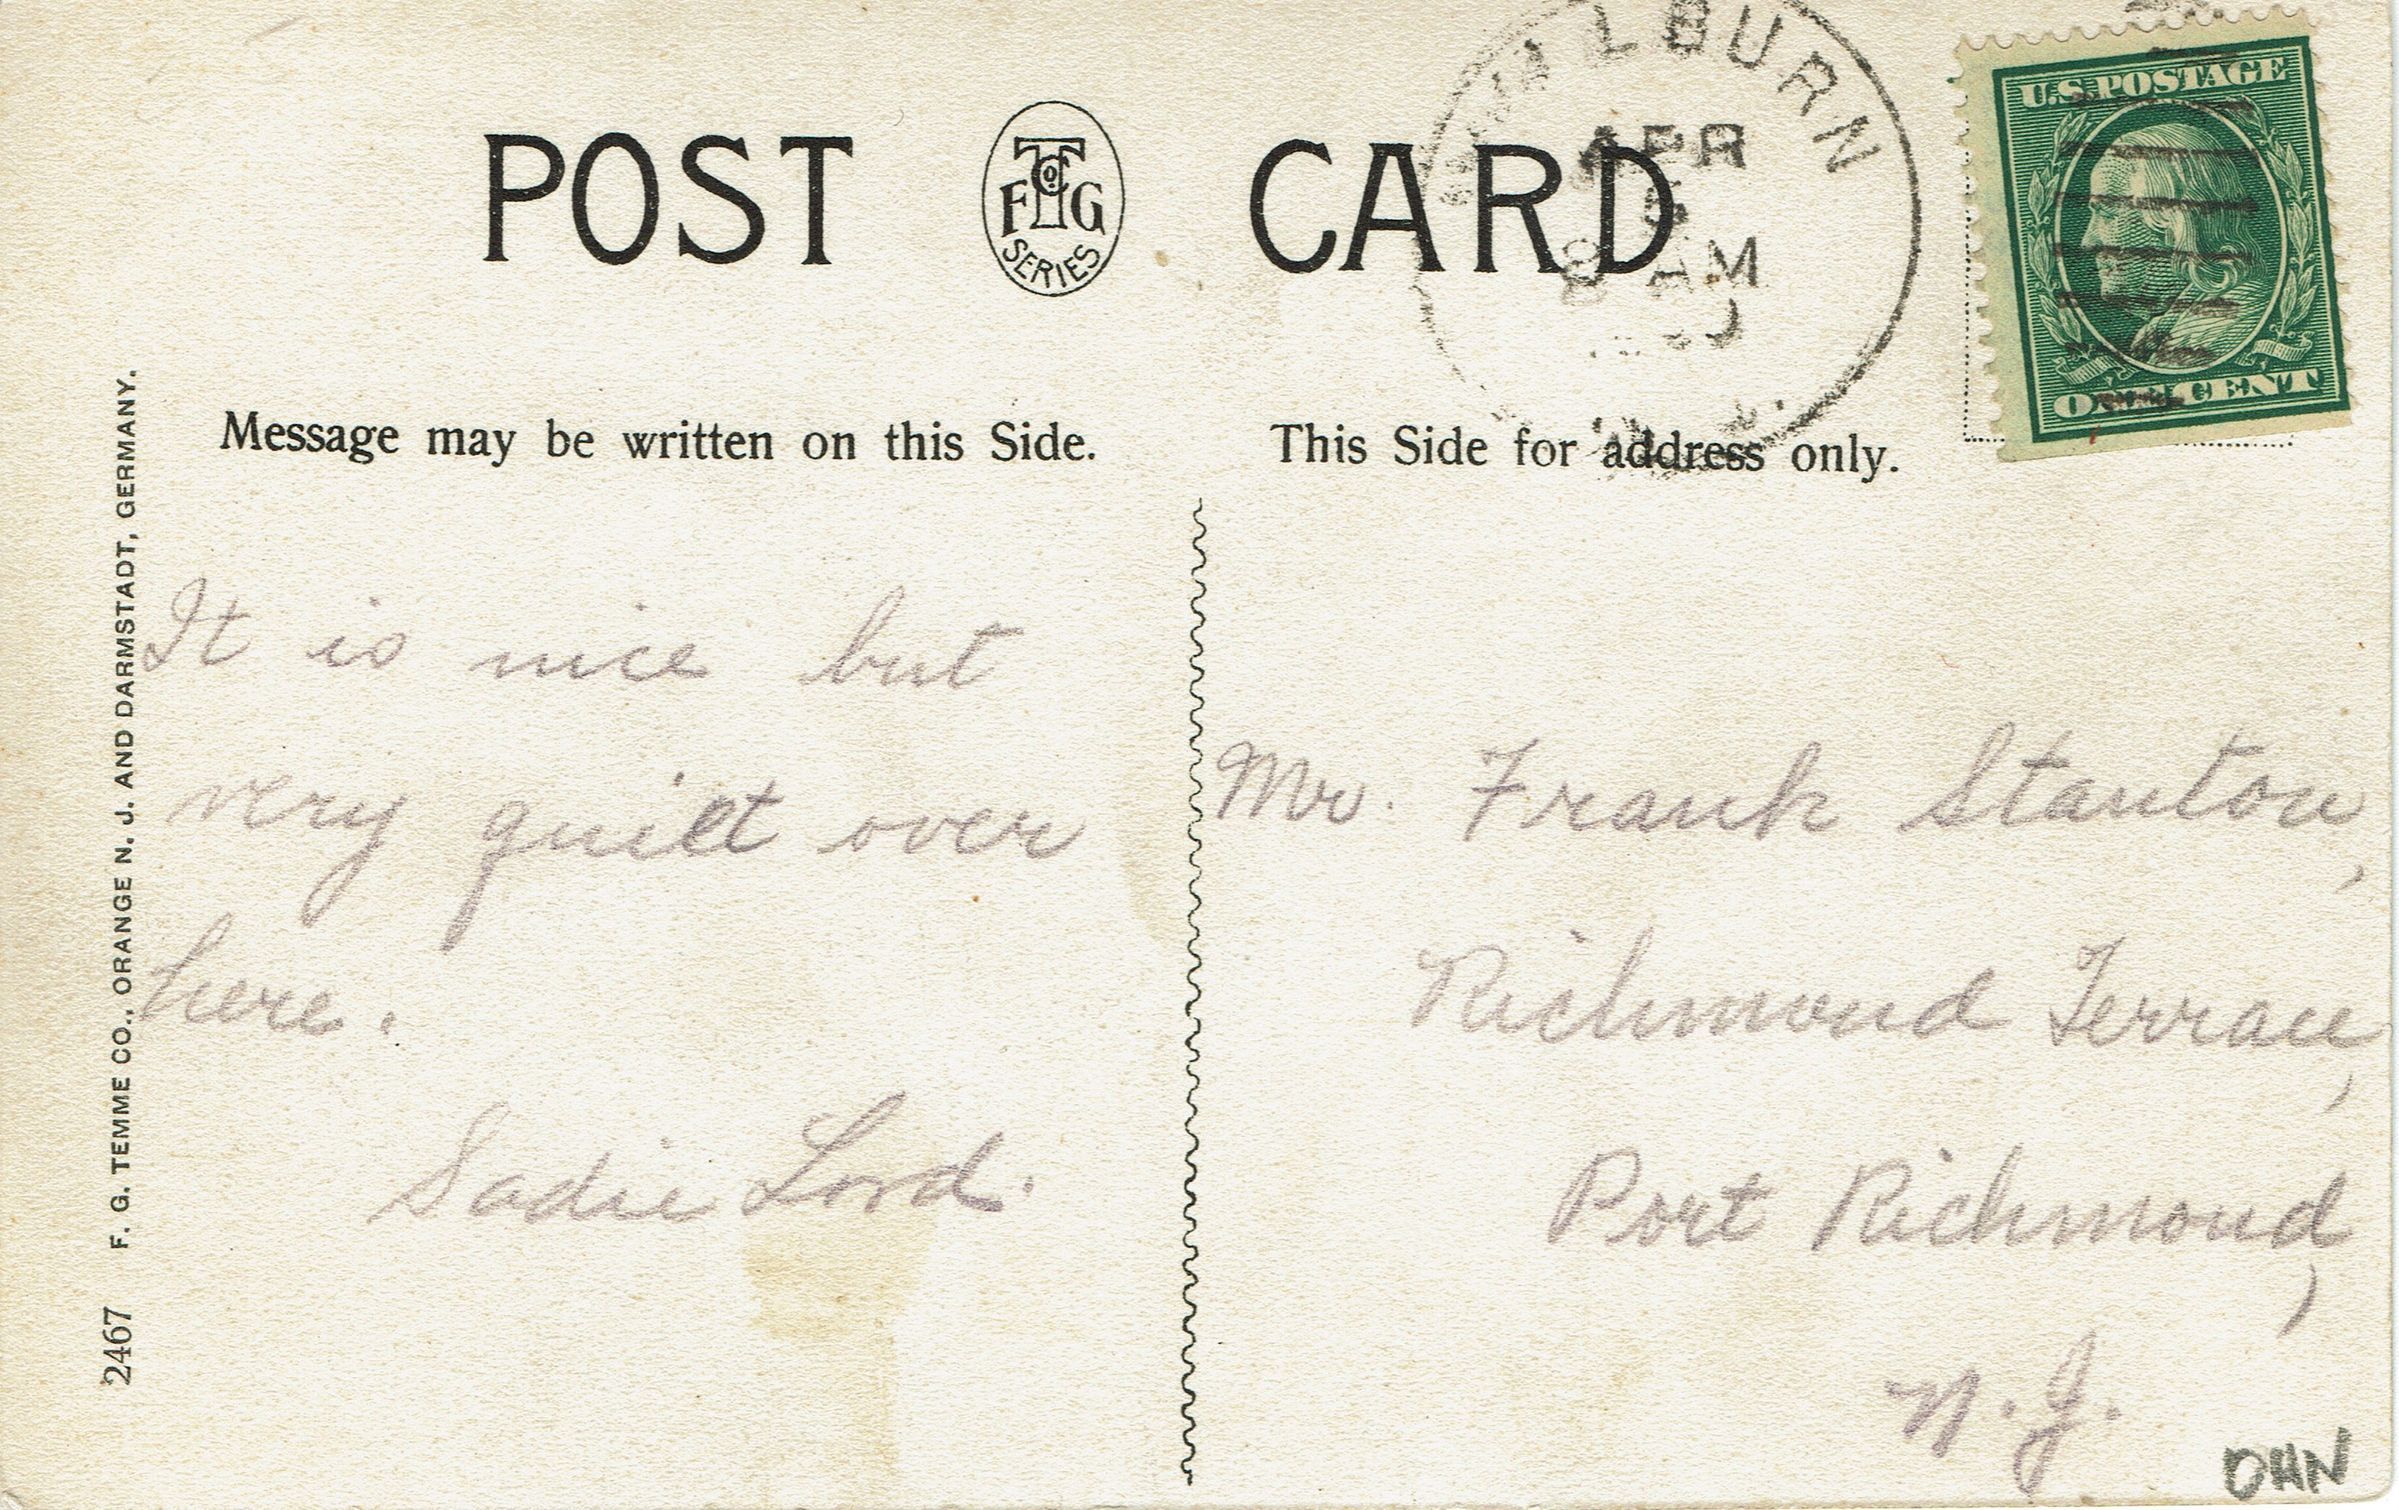 POST CARD
F T Co. G
SERIES
MILBURN
APR
5
8 AM
U.S. POSTAGE
ONE CENT
Message may be written on this Side.
This Side for address only.
It is nice but
very quiet over
here.
Sadie Lord.
Mr. Frank Stanton,
Richmond Terrace,
Port Richmond,
N.J.
OHN
2467 F. G. TEMME CO., ORANGE N. J. AND DARMSTADT, GERMANY.